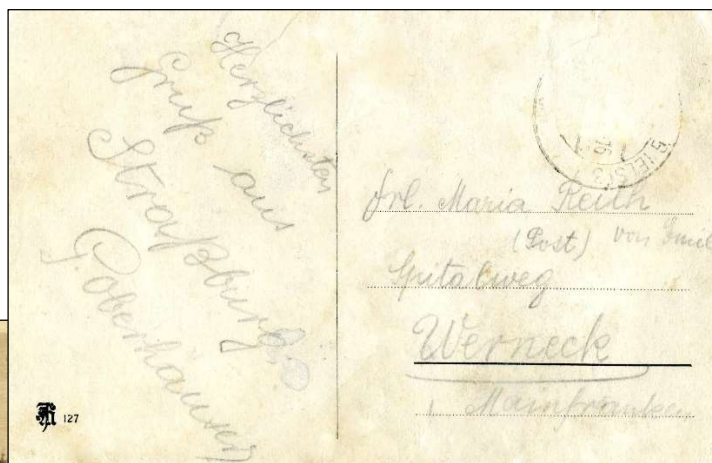 Herzlichsten
Gruß aus
Straßburg
P. Oberhäuser
127
16
Frl. Maria Reith
(Post) von Emil
Spitalweg
Werneck
Mainfranken